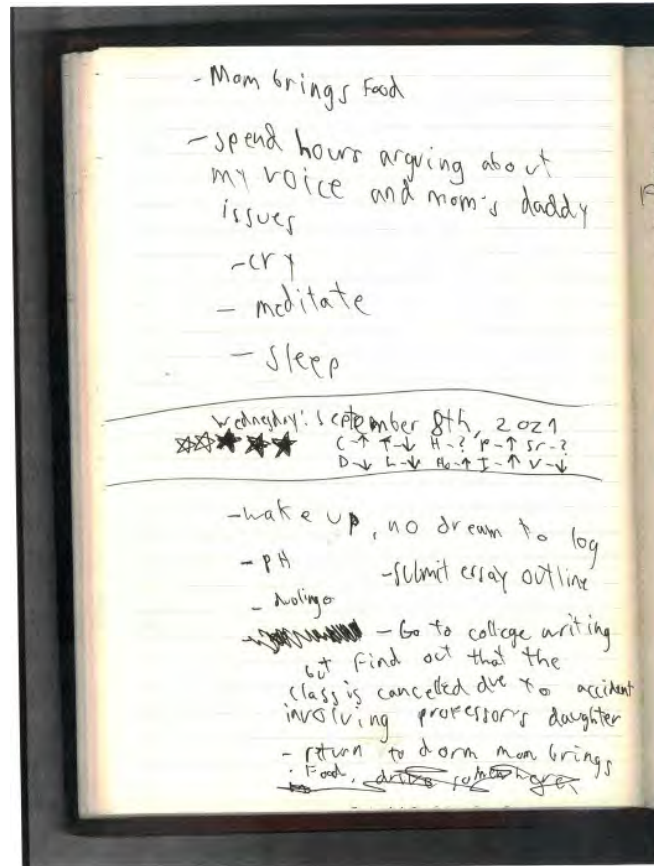 - Mom brings Food
- spend hours arguing about
my voice and mom's daddy
issues
- cry
- meditate
- sleep
Wednesday: September 8th, 2021
C-↑ T-↓ H-? P-↑ Sr-?
D-↓ L-↓ Ho-↑ I-↑ V-↓
- wake up, no dream to log
- pH - submit essay outline
- duolingo
- Go to college writing
but find out that the
class is cancelled due to accident
involving professor's daughter
- return to dorm mom brings
Food, drive somewhere